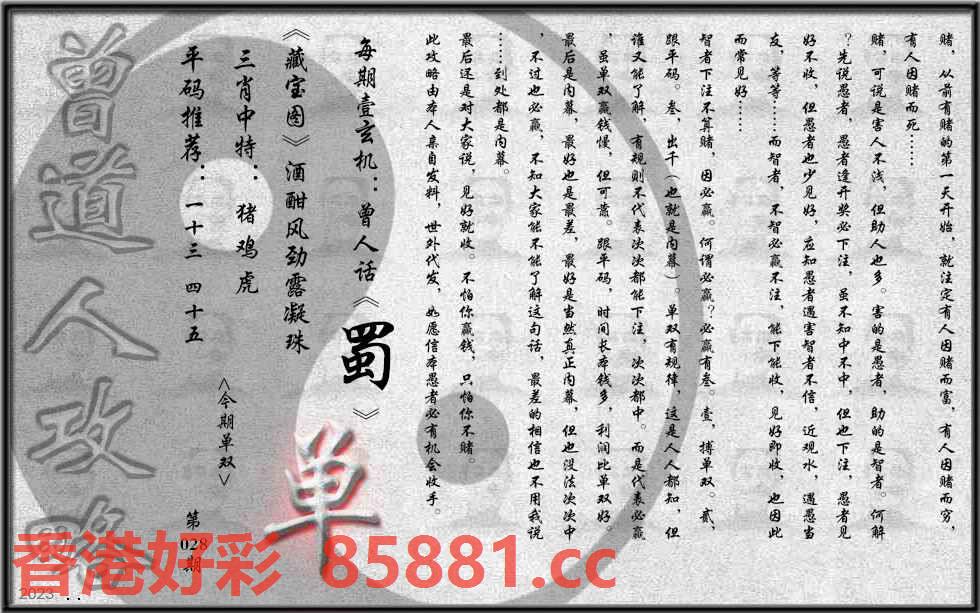 赌，从前有赌的第一天开始，就注定有人因赌而富，有人因赌而穷，
有人因赌而死……
赌，可说是害人不浅，但助人也多。害的是愚者，助的是智者。何解
？先说愚者，愚者逢开奖必下注，虽不知中不中，但也下注，愚者见
好不收，但愚者也少见好，应知愚者遇害智者不信，近观水，遇愚当
友，等等……而智者，不智必赢不注，能下能收，见好即收，也因此
而常见好……
智者下注不算赌，因必赢。何谓必赢？必赢有叁。壹，搏单双。贰，
跟平码。叁，出千（也就是内幕）。单双有规律，这是人人都知，但
谁又能了解，有规则不代表次次都能下注，次次都中。而是代表必赢
，虽单双赢钱慢，但可蓄。跟平码，时间长本钱多，利润比单双好。
最后是内幕，最好也是最差，最好是当然真正内幕，但也没法次次中
，不过也必赢，不知大家能不能了解这句话，最差的相信也不用我说
……到处都是内幕。
最后还是对大家说，见好就收。不怕你赢钱，只怕你不赌。
此攻略由本人亲自发料，世外代发，如愿信本愚者必有机会收手。
每期壹玄机：曾人话《蜀》
《藏宝图》酒酣风劲露凝珠
三肖中特：猪鸡虎
平码推荐：一十三 四十五
<今期单双>
单
第
028
期
曾道人攻略
香港好彩 85881.cc
2023